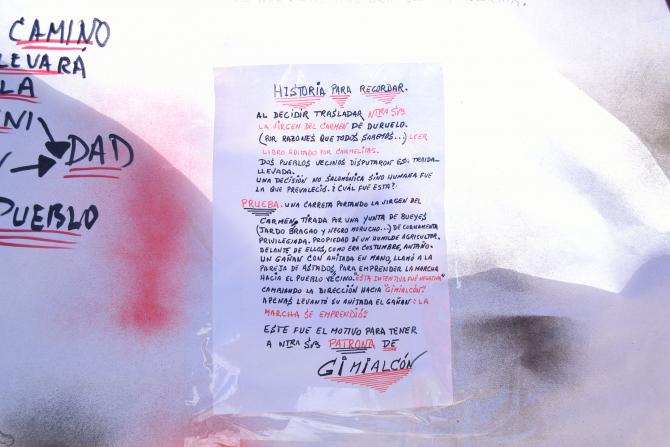 CAMINO
LEVARÁ
LA
NI
DAD
PUEBLO
HISTORIA PARA RECORDAR.
AL DECIDIR TRASLADAR NTRA SRA
LA VIRGEN DEL CARMEN DE DURUELO.
(POR RAZONES QUE TODOS SABEMOS...) LEER
LIBRO EDITADO POR CARMELITAS.
DOS PUEBLOS VECINOS DISPUTARON ESTA
LLEVADA.
UNA DECISIÓN NO SALOMÓNICA SINO HUMANA FUE
LA QUE PREVALECIÓ. ¿CUÁL FUE ESTA?
PRUEBA. UNA CARRETA PORTANDO LA VIRGEN DEL
CARMEN, TIRADA POR UNA YUNTA DE BUEYES
(JARDO BRAGAO Y NEGRO MORUCHO...) DE CORNAMENTA
PRIVILEGIADA, PROPIEDAD DE UN HUMILDE AGRICULTOR.
DELANTE DE ELLOS, COMO ERA COSTUMBRE, ANTAÑO.
UN GAÑAN CON AHIJADA EN MANO, LLAMÓ A LA
PAREJA DE ASTADOS, PARA EMPRENDER LA MARCHA
HACIA EL PUEBLO VECINO. "ESTA INTENTIVA FUE NEGATIVA"
CAMBIANDO LA DIRECCIÓN HACIA "GIMIALCÓN".
APENAS LEVANTÓ SU AHIJADA EL GAÑAN: LA
MARCHA SE EMPRENDIÓ.
ESTE FUE EL MOTIVO PARA TENER
A NTRA SRA PATRONA DE
GIMIALCÓN